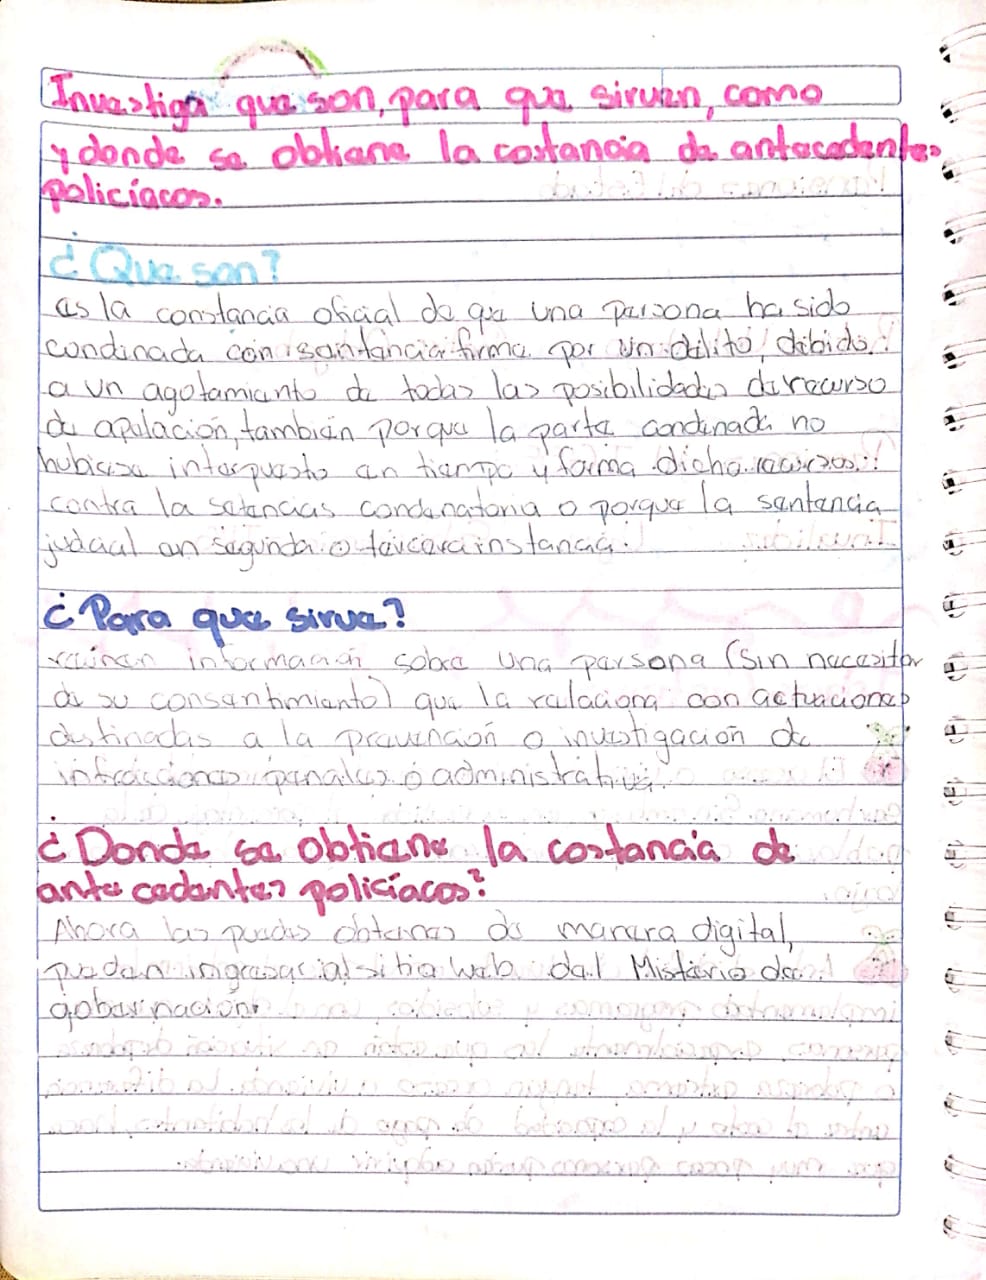 Investiga que son, para que sirven, como
y donde se obtiene la costancia de antecedentes
policíacos.
¿Que son?
es la constancia oficial de que una persona ha sido
condenada con sentencia firme por un delito, debido
a un agotamiento de todas las posibilidades de recurso
de apelación, también porque la parte condenada no
hubiese interpuesto en tiempo y forma dicha recursos
contra la setencias condenatoria o porque la sentencia
judcial en segunda o tercera instancia.
¿Para que sirve?
reúnen información sobre una persona (sin necesitar
de su consentimiento) que la relaciona con actuaciones
destinadas a la prevención o investigación de
infracciones penales o administrativa.
¿Donde se obtiene la costancia de
antecedentes policíacos?
Ahora las puedes obtenes de manera digital,
pueden ingresar al sitio web del Misterio de
gobernación